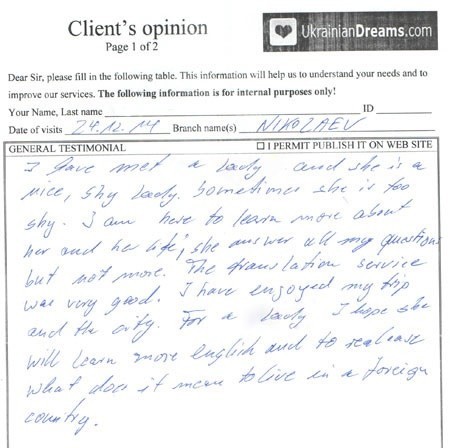 Client's opinion
Page 1 of 2
UkrainianDreams.com
Dear Sir, please fill in the following table. This information will help us to understand your needs and to
improve our services. The following information is for internal purposes only!
Your Name, Last name ID
Date of visits 24.12.14 Branch name(s) NIKOLAEV
GENERAL TESTIMONIAL ☐ I PERMIT PUBLISH IT ON WEB SITE
I have met a lady and she is a
nice, shy lady. Sometimes she is too
shy. I am here to learn more about
her and her life, she answer all my questions
but not more. The translation service
was very good. I have enjoyed my trip
and the city. For a lady I hope she
will learn more english and to realease
what does it mean to live in a foreign
country.